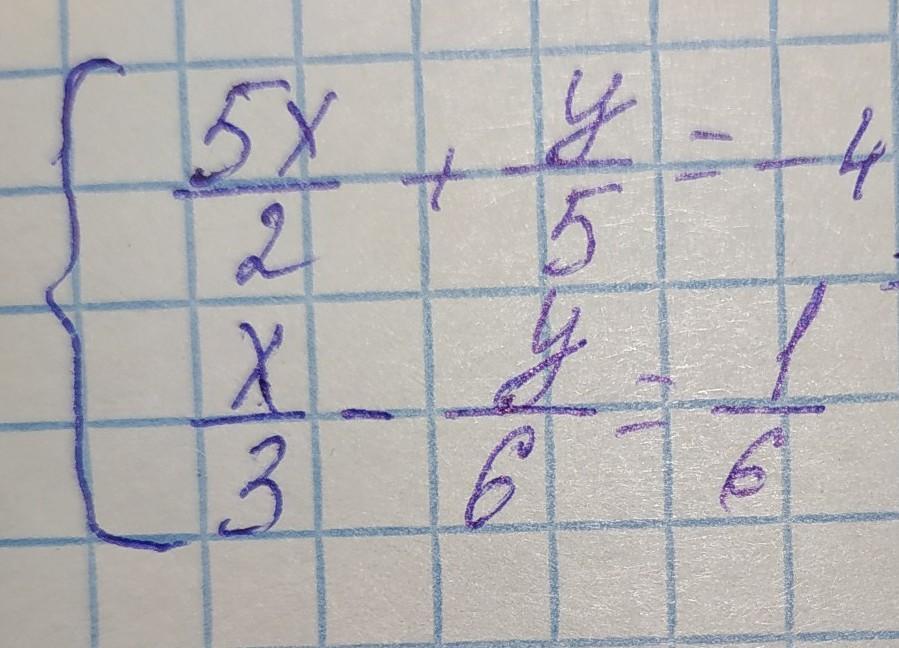 5x/2 + y/5 = -4
x/3 - y/6 = 1/6